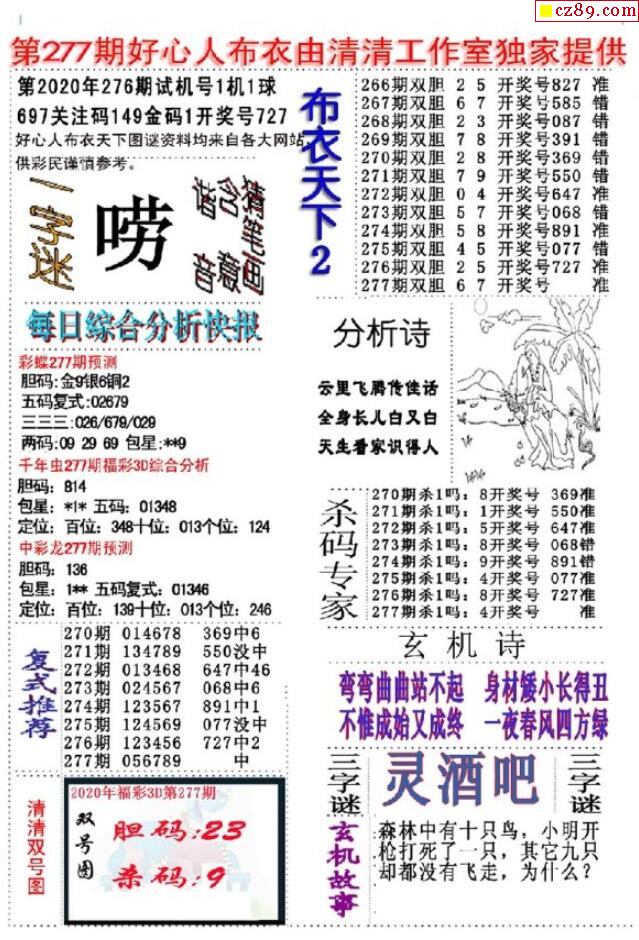 cz89.com
第277期好心人布衣由清清工作室独家提供
第2020年276期试机号1机1球
697关注码149金码1开奖号727
好心人布衣天下图谜资料均来自各大网站,
供彩民谨慎参考。
一字谜
唠
猜笔画
含意
谐音
布衣天下2
266期双胆 2 5 开奖号827 准
267期双胆 6 7 开奖号585 错
268期双胆 2 3 开奖号087 错
269期双胆 7 8 开奖号391 错
270期双胆 2 8 开奖号369 错
271期双胆 7 9 开奖号550 错
272期双胆 0 4 开奖号647 准
273期双胆 5 7 开奖号068 错
274期双胆 5 8 开奖号891 准
275期双胆 4 5 开奖号077 错
276期双胆 2 5 开奖号727 准
277期双胆 6 7 开奖号 准
每日综合分析快报
彩蝶277期预测
胆码:金9银6铜2
五码复式:02679
三三三:026/679/029
两码:09 29 69 包星:**9
千年虫277期福彩3D综合分析
胆码: 814
包星: *1* 五码: 01348
定位: 百位: 348十位: 013个位: 124
中彩龙277期预测
胆码: 136
包星: 1** 五码复式: 01346
定位: 百位: 139十位: 013个位: 246
分析诗
云里飞腾传佳话
全身长儿白又白
天生看家识得人
杀码专家
270期杀1吗: 8开奖号 369准
271期杀1吗: 1开奖号 550准
272期杀1吗: 5开奖号 647准
273期杀1吗: 8开奖号 068错
274期杀1吗: 9开奖号 891错
275期杀1吗: 4开奖号 077准
276期杀1吗: 8开奖号 727准
277期杀1吗: 4开奖号 准
复式推荐
270期 014678 369中6
271期 134789 550没中
272期 013468 647中46
273期 024567 068中6
274期 123567 891中1
275期 124569 077没中
276期 123456 727中2
277期 056789 中
玄机诗
弯弯曲曲站不起 身材矮小长得丑
不惟成始又成终 一夜春风四方绿
三字谜
灵酒吧
三字谜
清清双号图
2020年福彩3D第277期
双号图
胆码:23
杀码:9
玄机故事
森林中有十只鸟，小明开
枪打死了一只，其它九只
却都没有飞走，为什么？